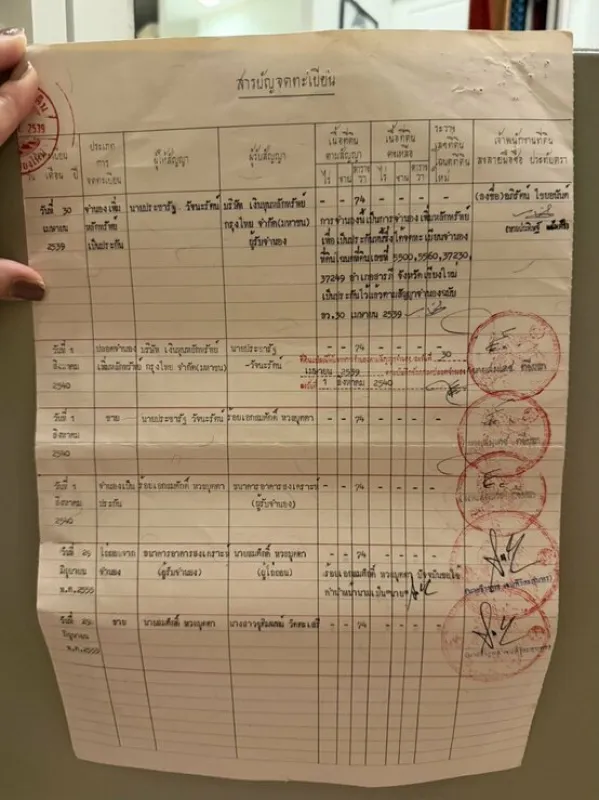 สารบัญจดทะเบียน
2539
ประเภท
การ
จดทะเบียน
ผู้ให้สัญญา
ผู้รับสัญญา
เนื้อที่ดิน
ตามสัญญา
ไร่ งาน ตารางวา
เนื้อที่ดิน
คงเหลือ
ไร่ งาน ตารางวา
ระวาง
เลขที่ดิน
โฉนดที่ดิน
ใหม่
เจ้าพนักงานที่ดิน
ลงลายมือชื่อ ประทับตรา
เดือน ปี
วันที่ 30
เมษายน
2539
จำนองเพิ่ม
หลักทรัพย์
เป็นประกัน
นายประชารัฐ วัจนะรัตน์
บริษัท เงินทุนหลักทรัพย์
กรุงไทย จำกัด(มหาชน)
ผู้รับจำนอง
- - 74 - - -
การจำนองนี้เป็นการจำนองเพิ่มหลักทรัพย์
เพื่อเป็นประกันหนี้ซึ่งได้จดทะเบียนจำนอง
ที่ดินโฉนดที่ดินเลขที่ 5500,5560,37230,
37249 อำเภอสารภี จังหวัดเชียงใหม่
เป็นประกันไว้แล้วตามสัญญาจำนองฉบับ
ลว.30 เมษายน 2539
(ลงชื่อ)
วันที่ 1
สิงหาคม
2540
ปลอดจำนอง
เพิ่มหลักทรัพย์
บริษัท เงินทุนหลักทรัพย์
กรุงไทย จำกัด(มหาชน)
นายประชารัฐ
วัจนะรัตน์
- - 74 - - -
30
เมษายน 2539
1 สิงหาคม 2540
วันที่ 1
สิงหาคม
2540
ขาย
นายประชารัฐ วัจนะรัตน์
ร้อยเอกสมศักดิ์ หวงบุตดา
- - 74 - - -
วันที่ 1
สิงหาคม
2540
จำนองเป็น
ประกัน
ร้อยเอกสมศักดิ์ หวงบุตดา
ธนาคารอาคารสงเคราะห์
(ผู้รับจำนอง)
- - 74 - - -
วันที่ 29
มิถุนายน
พ.ศ.2550
ไถ่ถอนจาก
จำนอง
ธนาคารอาคารสงเคราะห์
(ผู้รับจำนอง)
นายสมศักดิ์ หวงบุตดา
(ผู้ไถ่ถอน)
- - 74 - - -
ร้อยเอกสมศักดิ์ หวงบุตดา ปัจจุบันขอใช้
คำนำหน้านามเป็น"นาย"
วันที่ 29
มิถุนายน
พ.ศ.2550
ขาย
นายสมศักดิ์ หวงบุตดา
- - 74 - - -